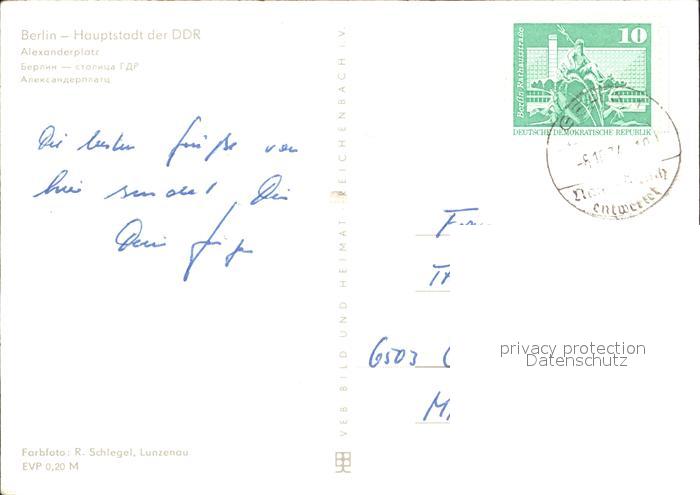 Berlin – Hauptstadt der DDR
Alexanderplatz
Берлин — столица ГДР
Александерплатц
10
Berlin, Rathausstraße
DEUTSCHE DEMOKRATISCHE REPUBLIK
entwertet
Die besten Grüße von
hier sendet Dir
Dein
6503
privacy protection
Datenschutz
VEB BILD UND HEIMAT REICHENBACH I.V.
Farbfoto: R. Schlegel, Lunzenau
EVP 0,20 M